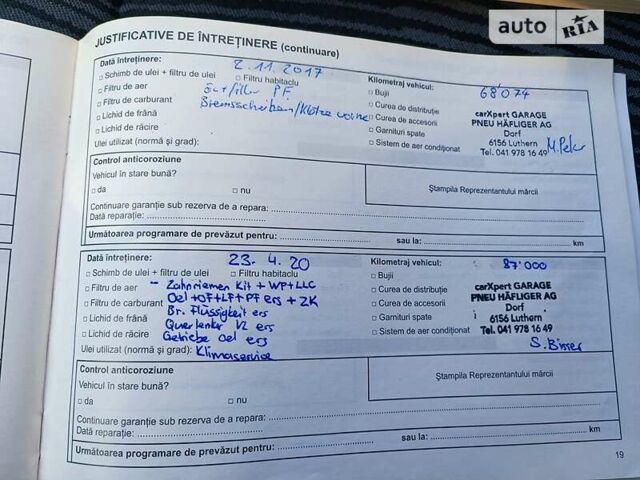 auto RIA
JUSTIFICATIVE DE ÎNTREȚINERE (continuare)
Dată întreținere: 2.11.2017 Kilometraj vehicul: 68'074
Schimb de ulei + filtru de ulei Filtru habitaclu Bujii
Filtru de aer Öl+filter PF Curea de distribuție
Filtru de carburant Bremsscheiben/Klötze vorne Curea de accesorii
Lichid de frână Garnituri spate
Lichid de răcire Sistem de aer condiționat
Ulei utilizat (normă și grad):
carXpert GARAGE
PNEU HÄFLIGER AG
Dorf
6156 Luthern
Tel. 041 978 16 49
Control anticoroziune
Vehicul în stare bună?
da nu
Ștampila Reprezentantului mărcii
Continuare garanție sub rezerva de a repara:
Dată reparație:
Următoarea programare de prevăzut pentru: sau la: km
Dată întreținere: 23.4.20 Kilometraj vehicul: 87'000
Schimb de ulei + filtru de ulei Filtru habitaclu Bujii
Filtru de aer - Zahnriemen Kit + WP + LLC Curea de distribuție
Filtru de carburant Oel+OF+LF+PF ers + ZK Curea de accesorii
Lichid de frână Br. Flüssigkeit ers Garnituri spate
Lichid de răcire Querlenker VL ers Sistem de aer condiționat
Getriebe Oel ers
Ulei utilizat (normă și grad): Klimaservice
carXpert GARAGE
PNEU HÄFLIGER AG
Dorf
6156 Luthern
Tel. 041 978 16 49
Control anticoroziune
Vehicul în stare bună?
da nu
Ștampila Reprezentantului mărcii
Continuare garanție sub rezerva de a repara:
Dată reparație:
Următoarea programare de prevăzut pentru: sau la: km
19